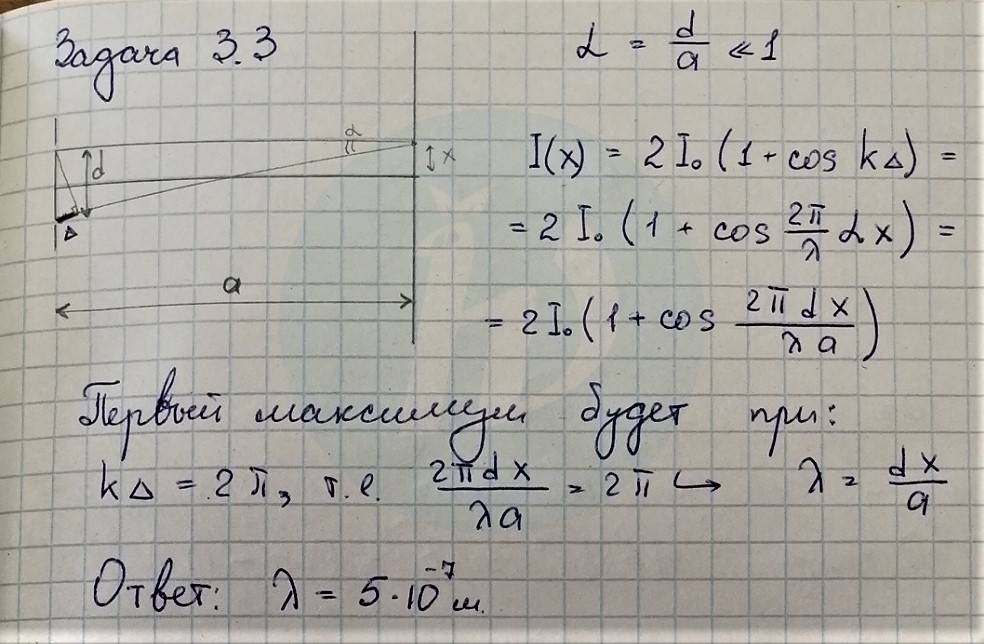 Задача 3.3
α = d/a ≪ 1
α
d
x
Δ
a
I(x) = 2I₀(1 + cos kΔ) =
= 2I₀(1 + cos 2π/λ αx) =
= 2I₀(1 + cos 2πdx/λa)
Первый максимум будет при:
kΔ = 2π, т.е. 2πdx/λa = 2π ↪ λ = dx/a
Ответ: λ = 5·10⁻⁷ м.